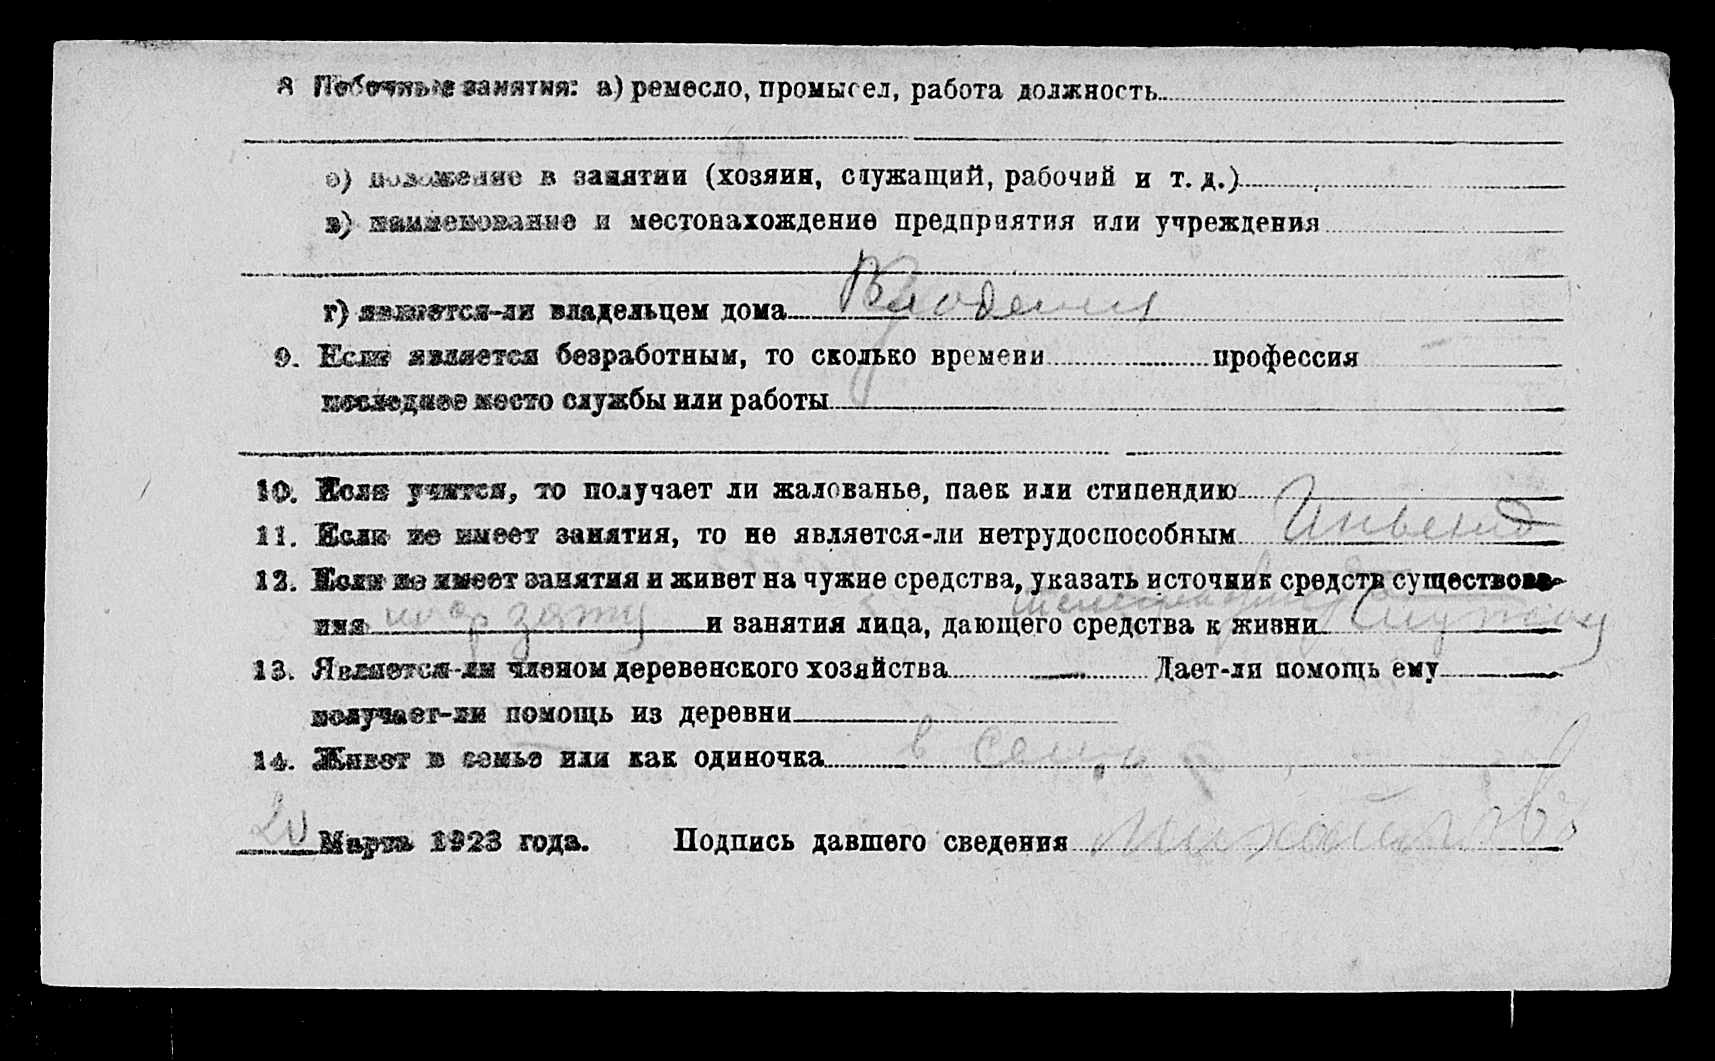 8 Побочные занятия: а) ремесло, промысел, работа должность
б) положение в занятии (хозяин, служащий, рабочий и т. д.)
в) наименование и местонахождение предприятия или учреждения
г) является-ли владельцем дома
9. Если является безработным, то сколько времени профессия
последнее место службы или работы
10. Если учится, то получает ли жалованье, паек или стипендию
11. Если не имеет занятия, то не является-ли нетрудоспособным
12. Если не имеет занятия и живет на чужие средства, указать источник средств существова-
ния и занятия лица, дающего средства к жизни
13. Является-ли членом деревенского хозяйства Дает-ли помощь ему
получает-ли помощь из деревни
14. Живет в семье или как одиночка в семье
20 Марта 1923 года. Подпись давшего сведения